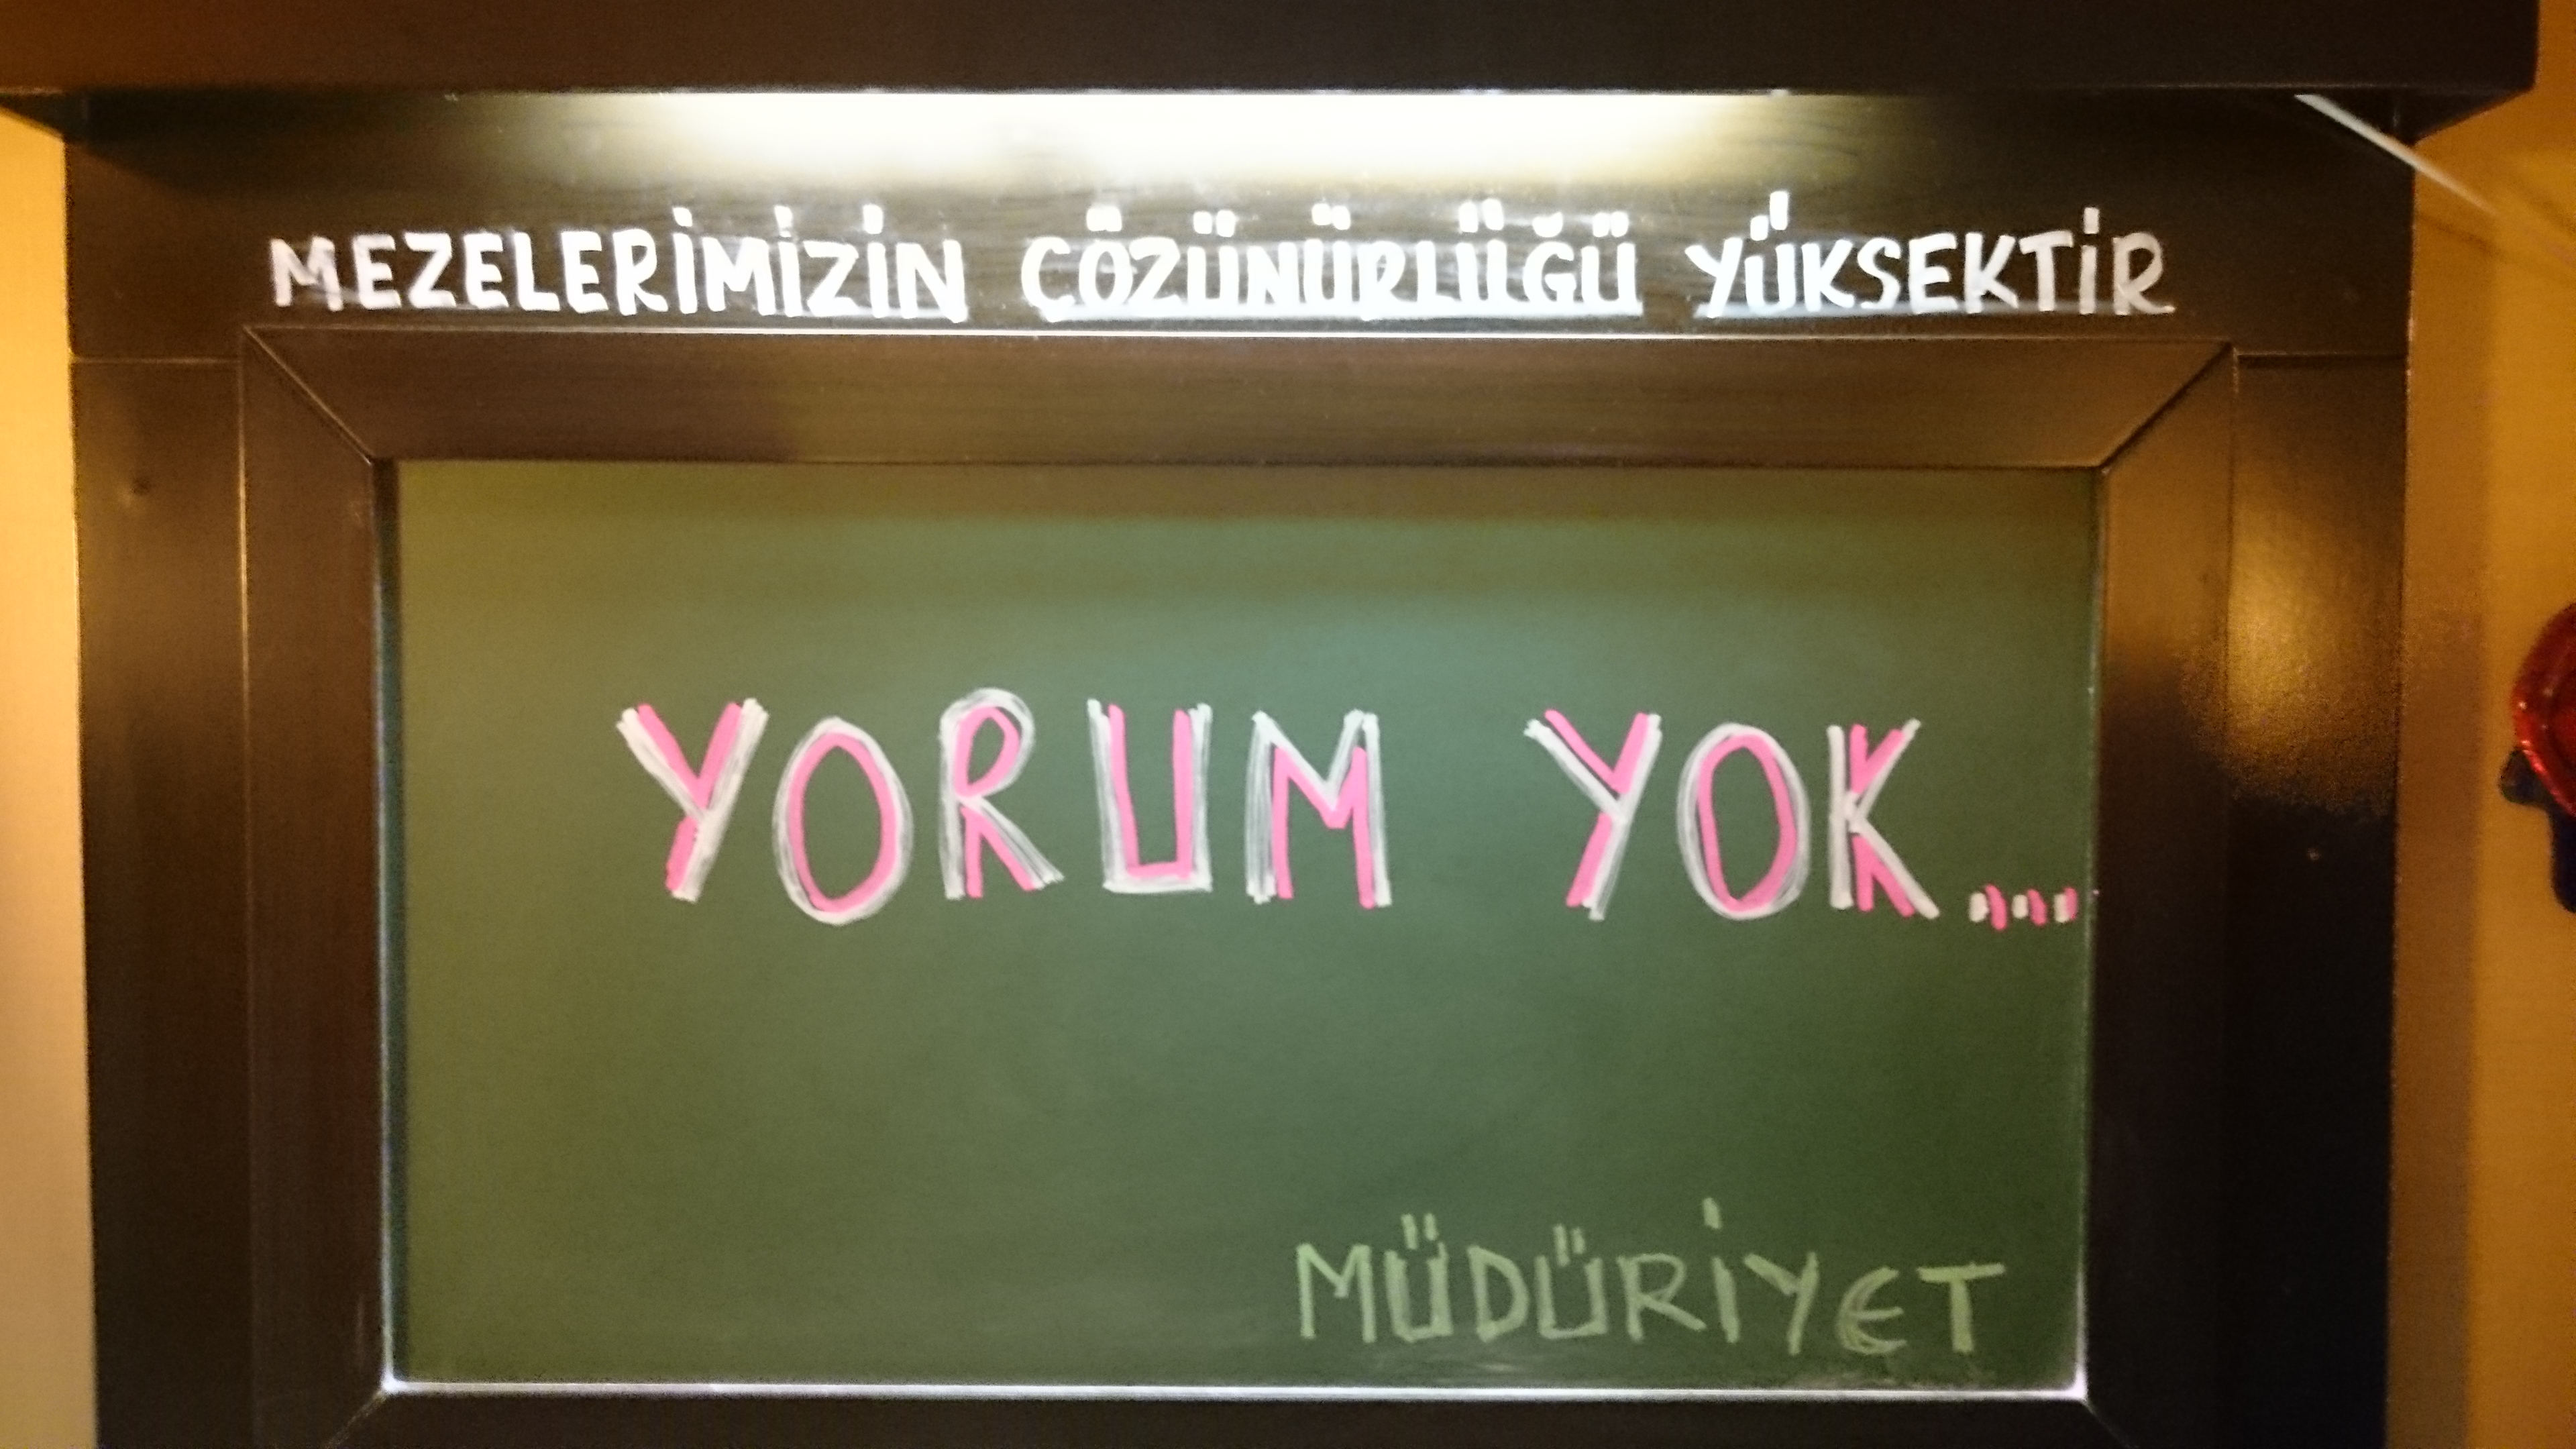 MEZELERİMİZİN ÇÖZÜNÜRLÜĞÜ YÜKSEKTİR
YORUM YOK...
MÜDÜRİYET